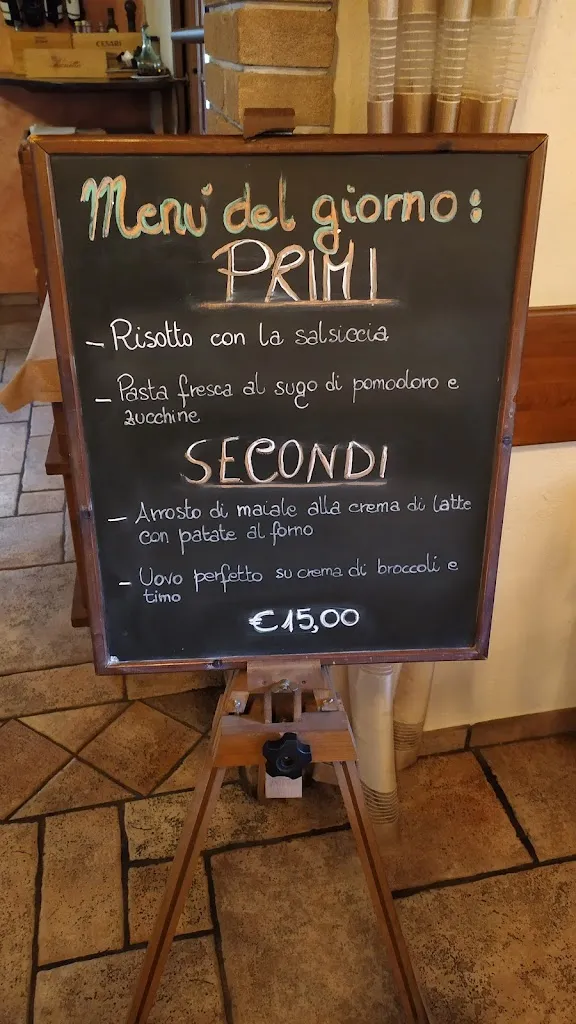 CESARI
Menu' del giorno:
PRIMI
- Risotto con la salsiccia
- Pasta fresca al sugo di pomodoro e
zucchine
SECONDI
- Arrosto di maiale alla crema di latte
con patate al forno
- Uovo perfetto su crema di broccoli e
timo
€15,00